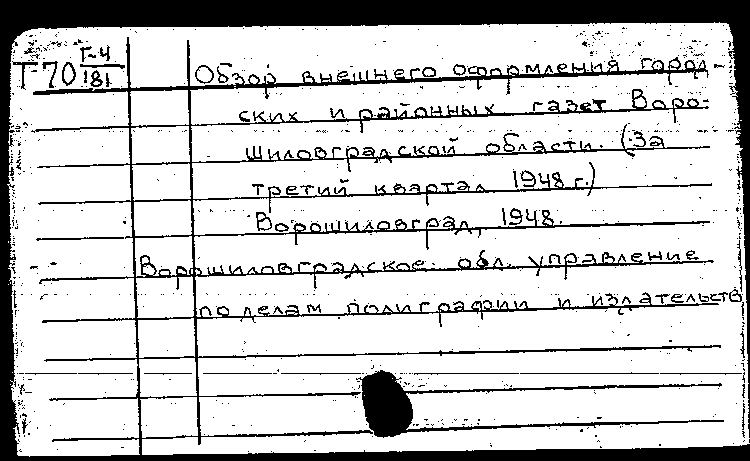 Т-70 Г-4/181
Обзор внешнего оформления город-
ских и районных газет Воро-
шиловградской области. (За
третий квартал 1948 г.)
Ворошиловград, 1948.
Ворошиловградское обл. управление
по делам полиграфии и издательств